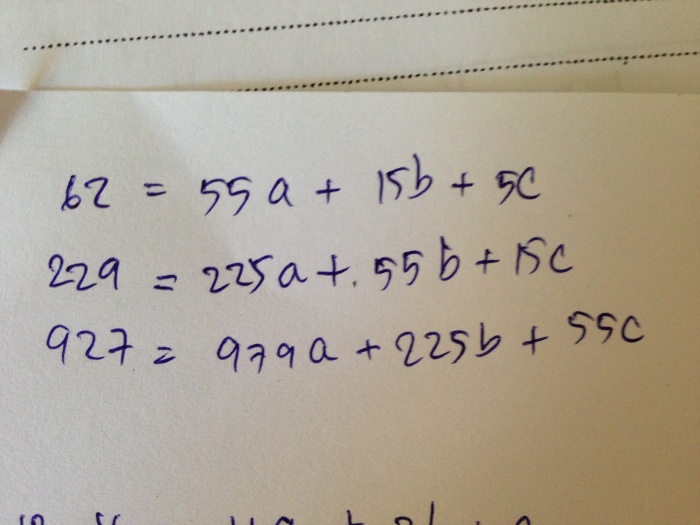 62 = 55a + 15b + 5c
229 = 225a + 55b + 15c
927 = 979a + 225b + 55c